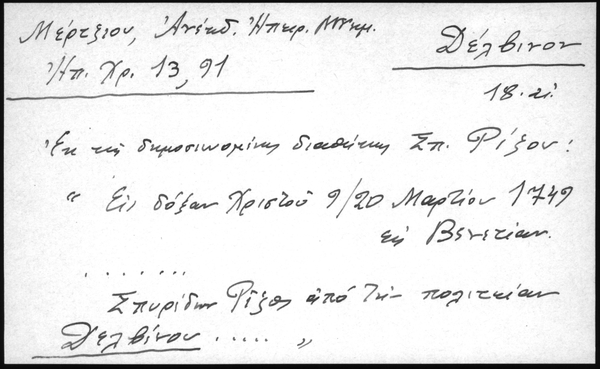 Μέρτζιου, Ἀνέκδ. Ἠπειρ. Μνημ.
Ἠπ. Χρ. 13, 91
Δέλβινον
18. αἰ.
Ἐκ τῆς δημοσιευομένης διαθήκης Σπ. Ρίζου:
" Εἰς δόξαν Χριστοῦ 9/20 Μαρτίου 1749
εἰς Βενετίαν.
.......
Σπυρίδων Ρίζος ἀπό τήν πολιτείαν
Δελβίνου ..... "